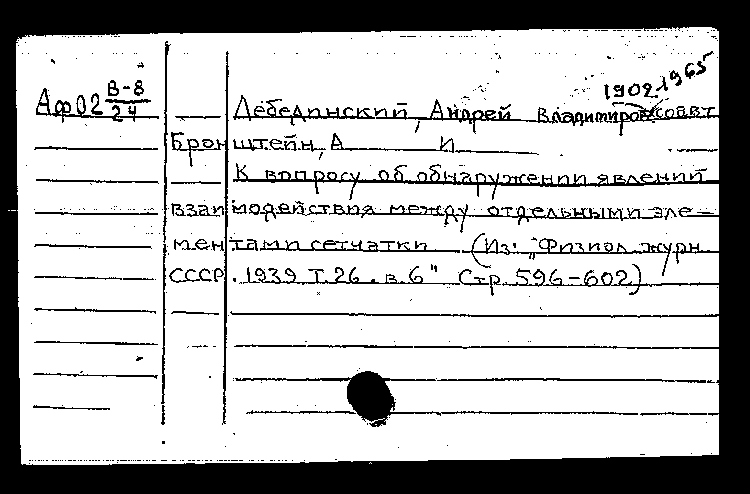 1902-1965
Аф02 В-8/24 Лебединский, Андрей Владимиров соавт
Бронштейн, А И
К вопросу об обнаружении явлений
взаимодействия между отдельными эле-
ментами сетчатки (Из: „Физиол журн
СССР. 1939 Т. 26. в. 6" Стр 596-602)